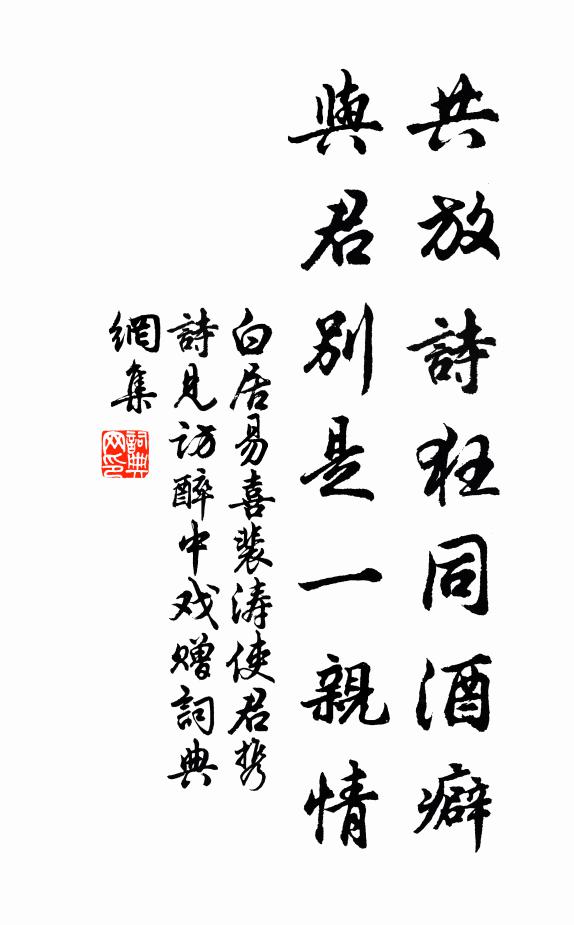 共放詩狂同酒癖
與君別是一親情
白居易喜裴涛使君携
詩見访醉中戏赠詞典
網集
詞典网印